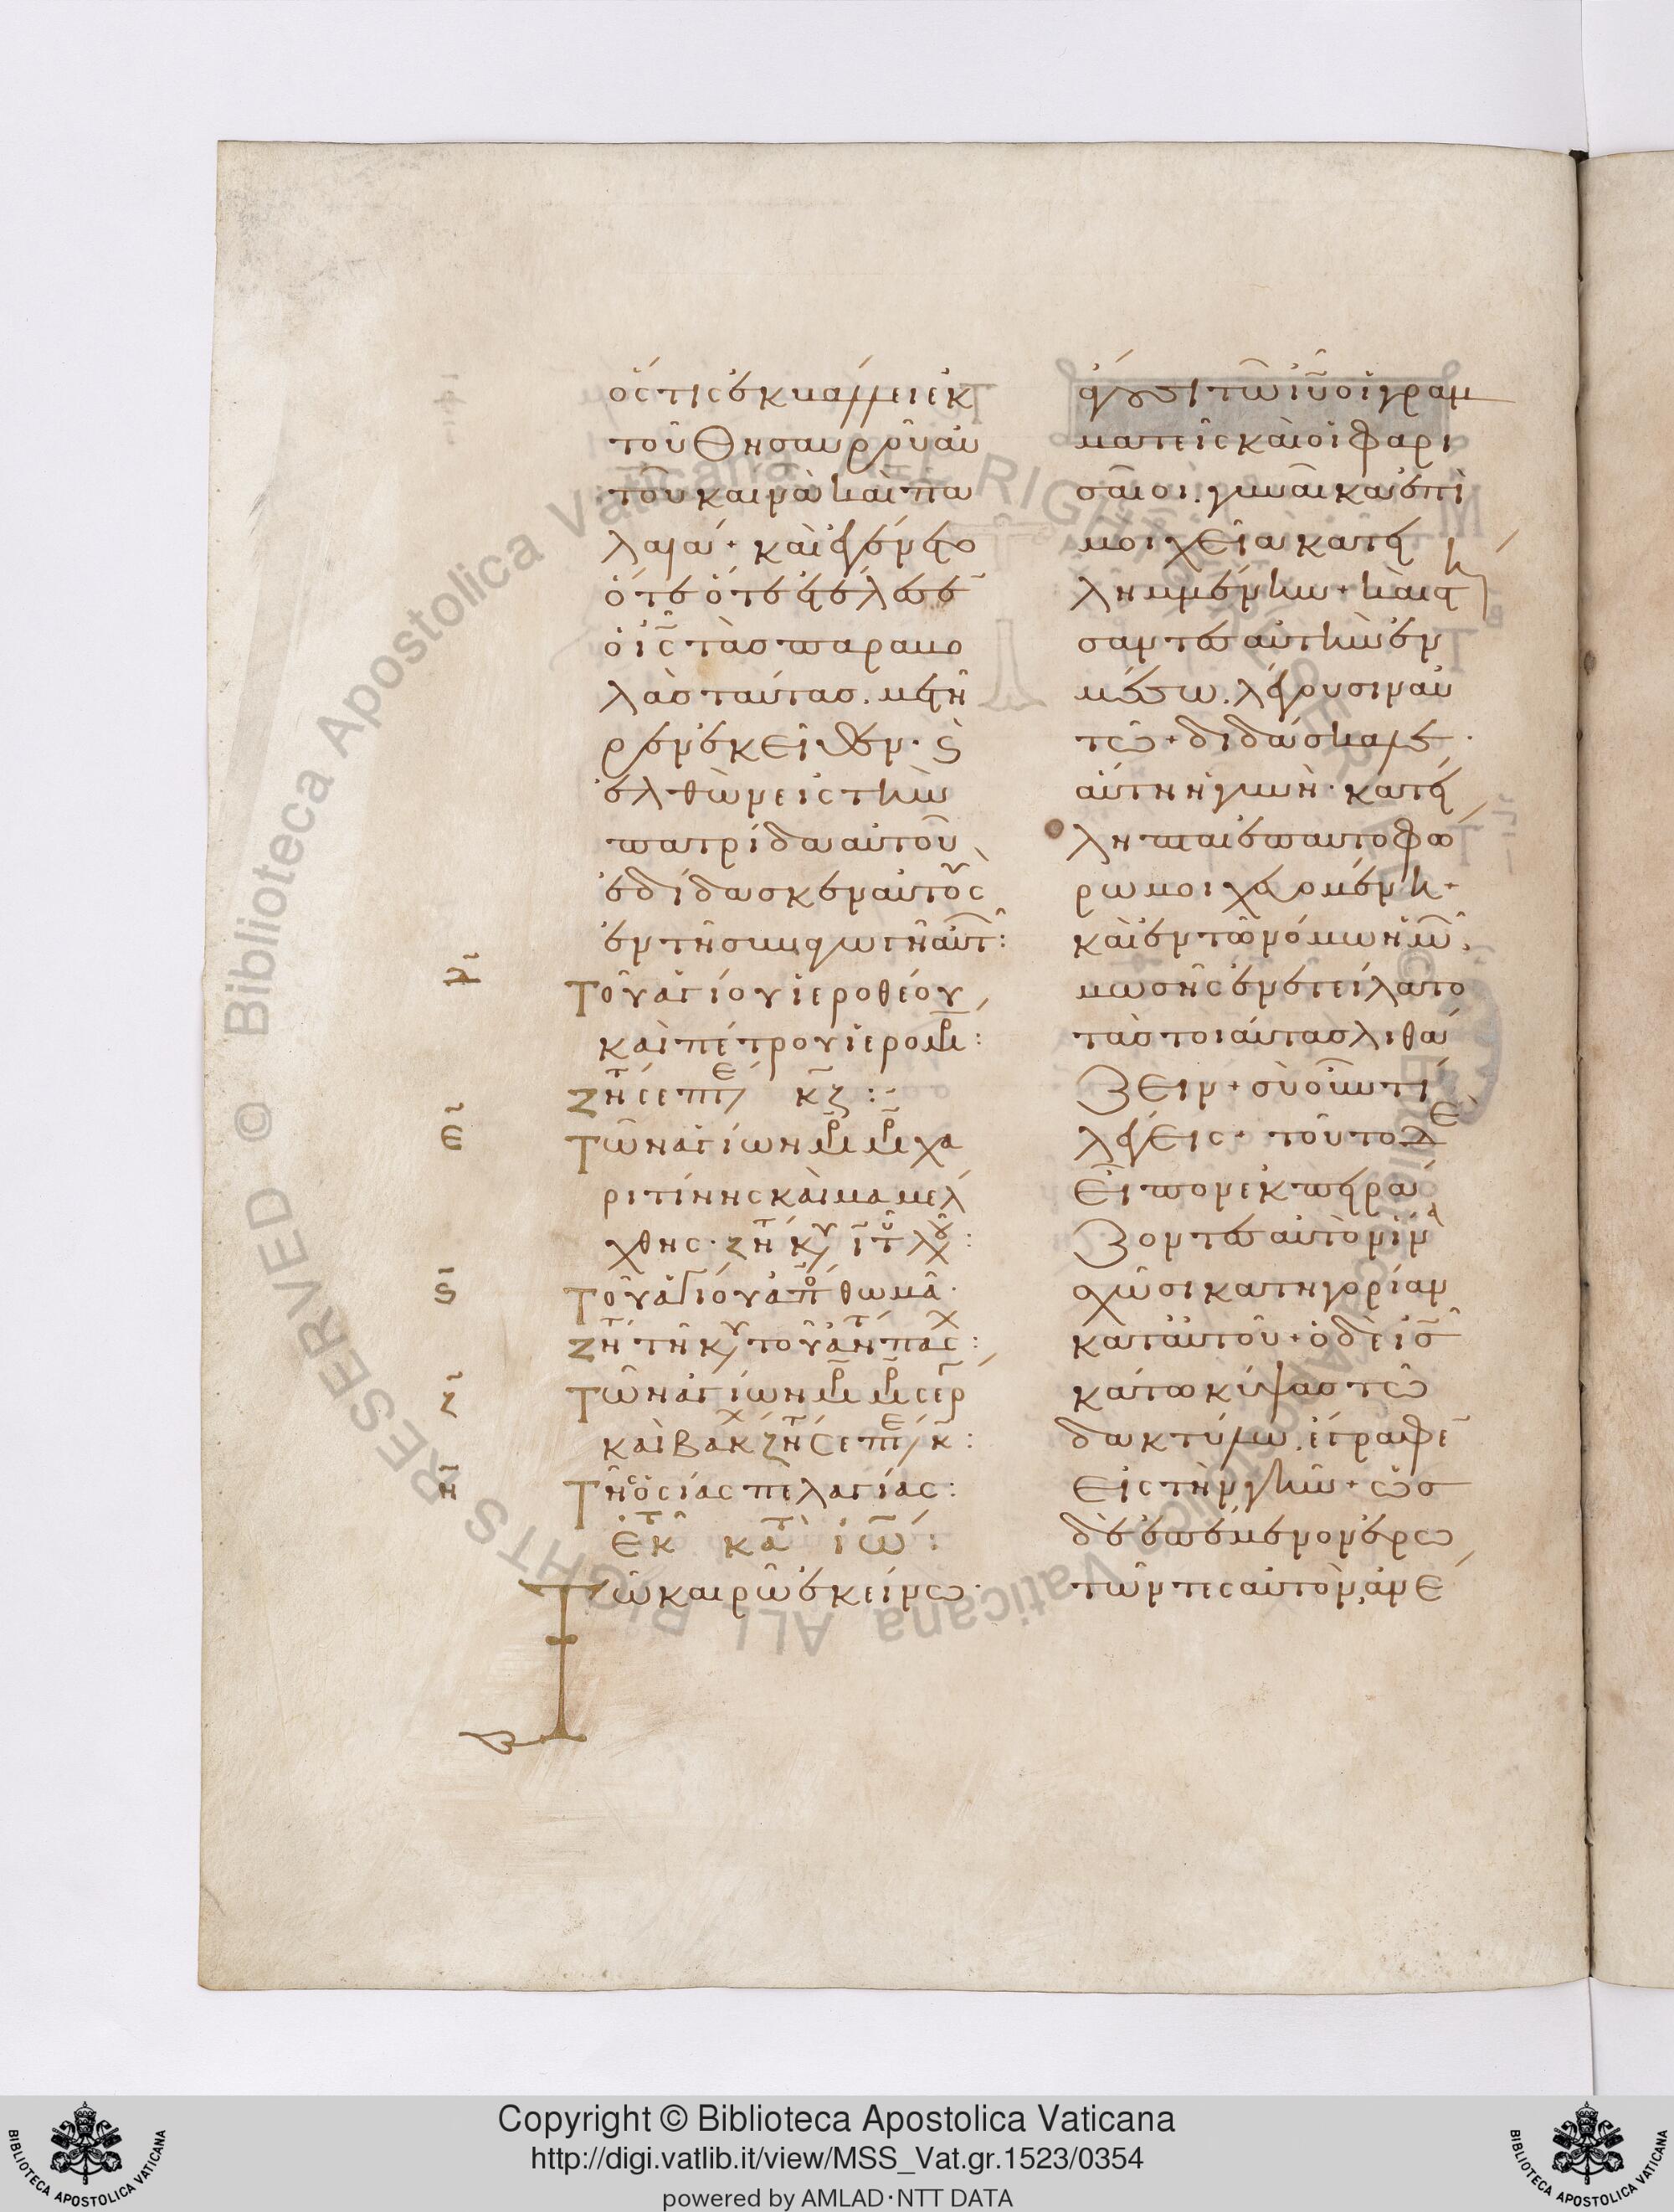 ὅστις ἐκβάλλει ἐκ
τοῦ θησαυροῦ αὐ
τοῦ καινὰ καὶ πα
λαιά· καὶ ἐγένετο
ὅτε ἐτέλεσε
ὁ ἰ̅ς̅ τὰς παραβο
λὰς ταύτας. μετῆ
ρεν ἐκεῖθεν·
ἐλθὼν εἰς τὴν
πατρίδα αὐτοῦ
ἐδίδασκεν αὐτοὺς
ἐν τῇ συναγωγῇ αὐτ:
Τοῦ ἁγίου ἱεροθέου
καὶ πέτρου ἱερομ:
ζητ σεπτε κζ:
ε
Τῶν ἁγίων μρ μρ χα
ριτίνης καὶ μαμελ
χθης· ζητ κυ ιτ λου:
ϛ
Τοῦ ἁγίου ἀπο θωμᾶ·
ζητ τῇ κυ τοῦ ἀντιπασχ:
ζ
Τῶν ἁγίων μρ μρ σερ
καὶ βακχ ζητ σεπτε κ:
η
Τῆς ὁσίας πελαγίας:
ἐκ κατ ἰω:
Τῶ καιρῶ ἐκείνω·
ἄγουσι τῶ ἰ̅υ̅ οἱ γραμ
ματεῖς καὶ οἱ φαρι
σαῖοι. γυναῖκα ἐπὶ
μοιχεία κατει
λημμένην· καὶ στή
σαντες αὐτὴν ἐν
μέσω. λέγουσιν αὐ
τῶ· διδάσκαλε·
αὕτη ἡ γυνὴ· κατεί
ληπται ἐπαυτοφώ
ρω μοιχευομένη·
καὶ ἐν τῶ νόμω ἡμῶν
μωσῆς ἐνετείλατο
τὰς τοιαύτας λιθά
ζειν· σὺ οὖν τί
λέγεις· τοῦτο δὲ
εἶπον ἐκπειρά
ζοντες αὐτὸν ἵνα
σχῶσι κατηγορίαν
κατ αὐτοῦ· ὁ δὲ ἰ̅ς̅
κάτω κύψας τῶ
δακτύλω. ἔγραφε
εἰς τὴν γῆν· ὡς
δὲ ἐπέμενον ἐρω
τῶντες αὐτὸν, ἀνε
Copyright © Biblioteca Apostolica Vaticana
http://digi.vatlib.it/view/MSS_Vat.gr.1523/0354
powered by AMLAD·NTT DATA
BIBLIOTECA APOSTOLICA VATICANA
BIBLIOTECA APOSTOLICA VATICANA
© Biblioteca Apostolica Vaticana ALL RIGHTS RESERVED